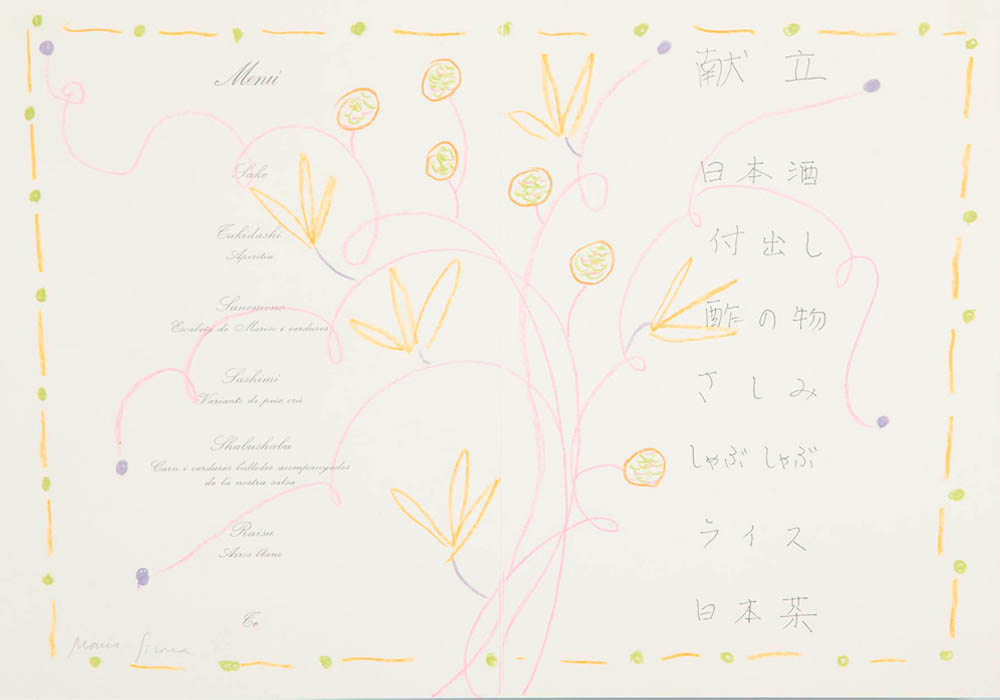 Menú
Sake
Tukidashi
Aperitiu
Sunomono
Escabeig de Marisc i verdures
Sashimi
Variants de peix crú
Shabushabu
Carn i verdures bullides acompanyades
de la nostra salsa
Raisu
Arros blanc
Te
献立
日本酒
付出し
酢の物
さしみ
しゃぶしゃぶ
ライス
日本茶